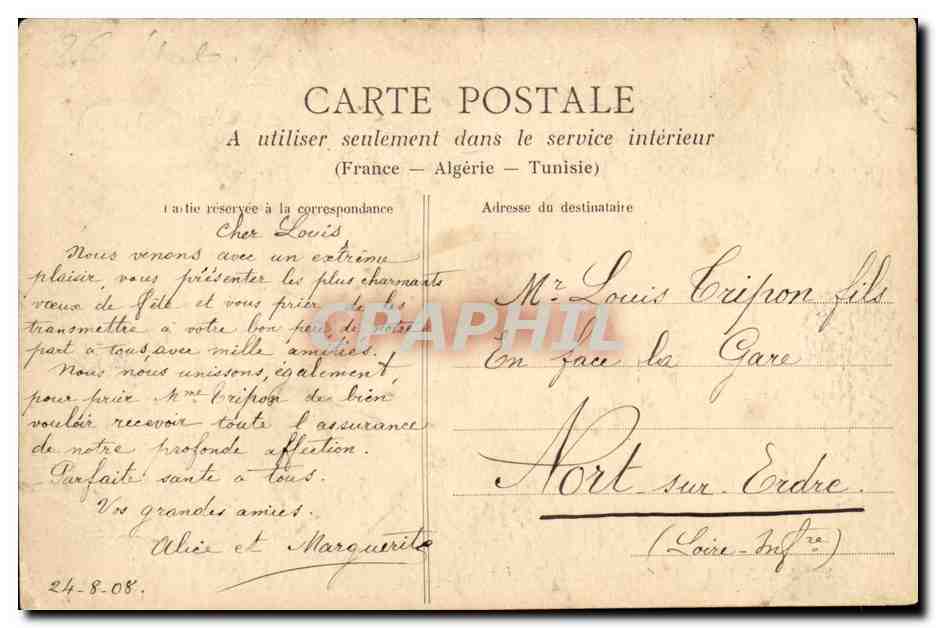 CARTE POSTALE
A utiliser seulement dans le service intérieur
(France — Algérie — Tunisie)
Partie réservée à la correspondance
Cher Louis
Nous venons avec un extrême
plaisir vous présenter les plus charmants
vœux de fête et vous prier de les
transmettre à votre bon père de notre
part à tous, avec mille amitiés.
Nous nous unissons, également,
pour prier Mme Tripon de bien
vouloir recevoir toute l'assurance
de notre profonde affection.
Parfaite santé à tous.
Vos grandes amies.
Alice et Marguerite
24-8-08.
Adresse du destinataire
Mr Louis Tripon fils
En face la Gare
Nort-sur-Erdre.
(Loire-Infre)
CPAPHIL